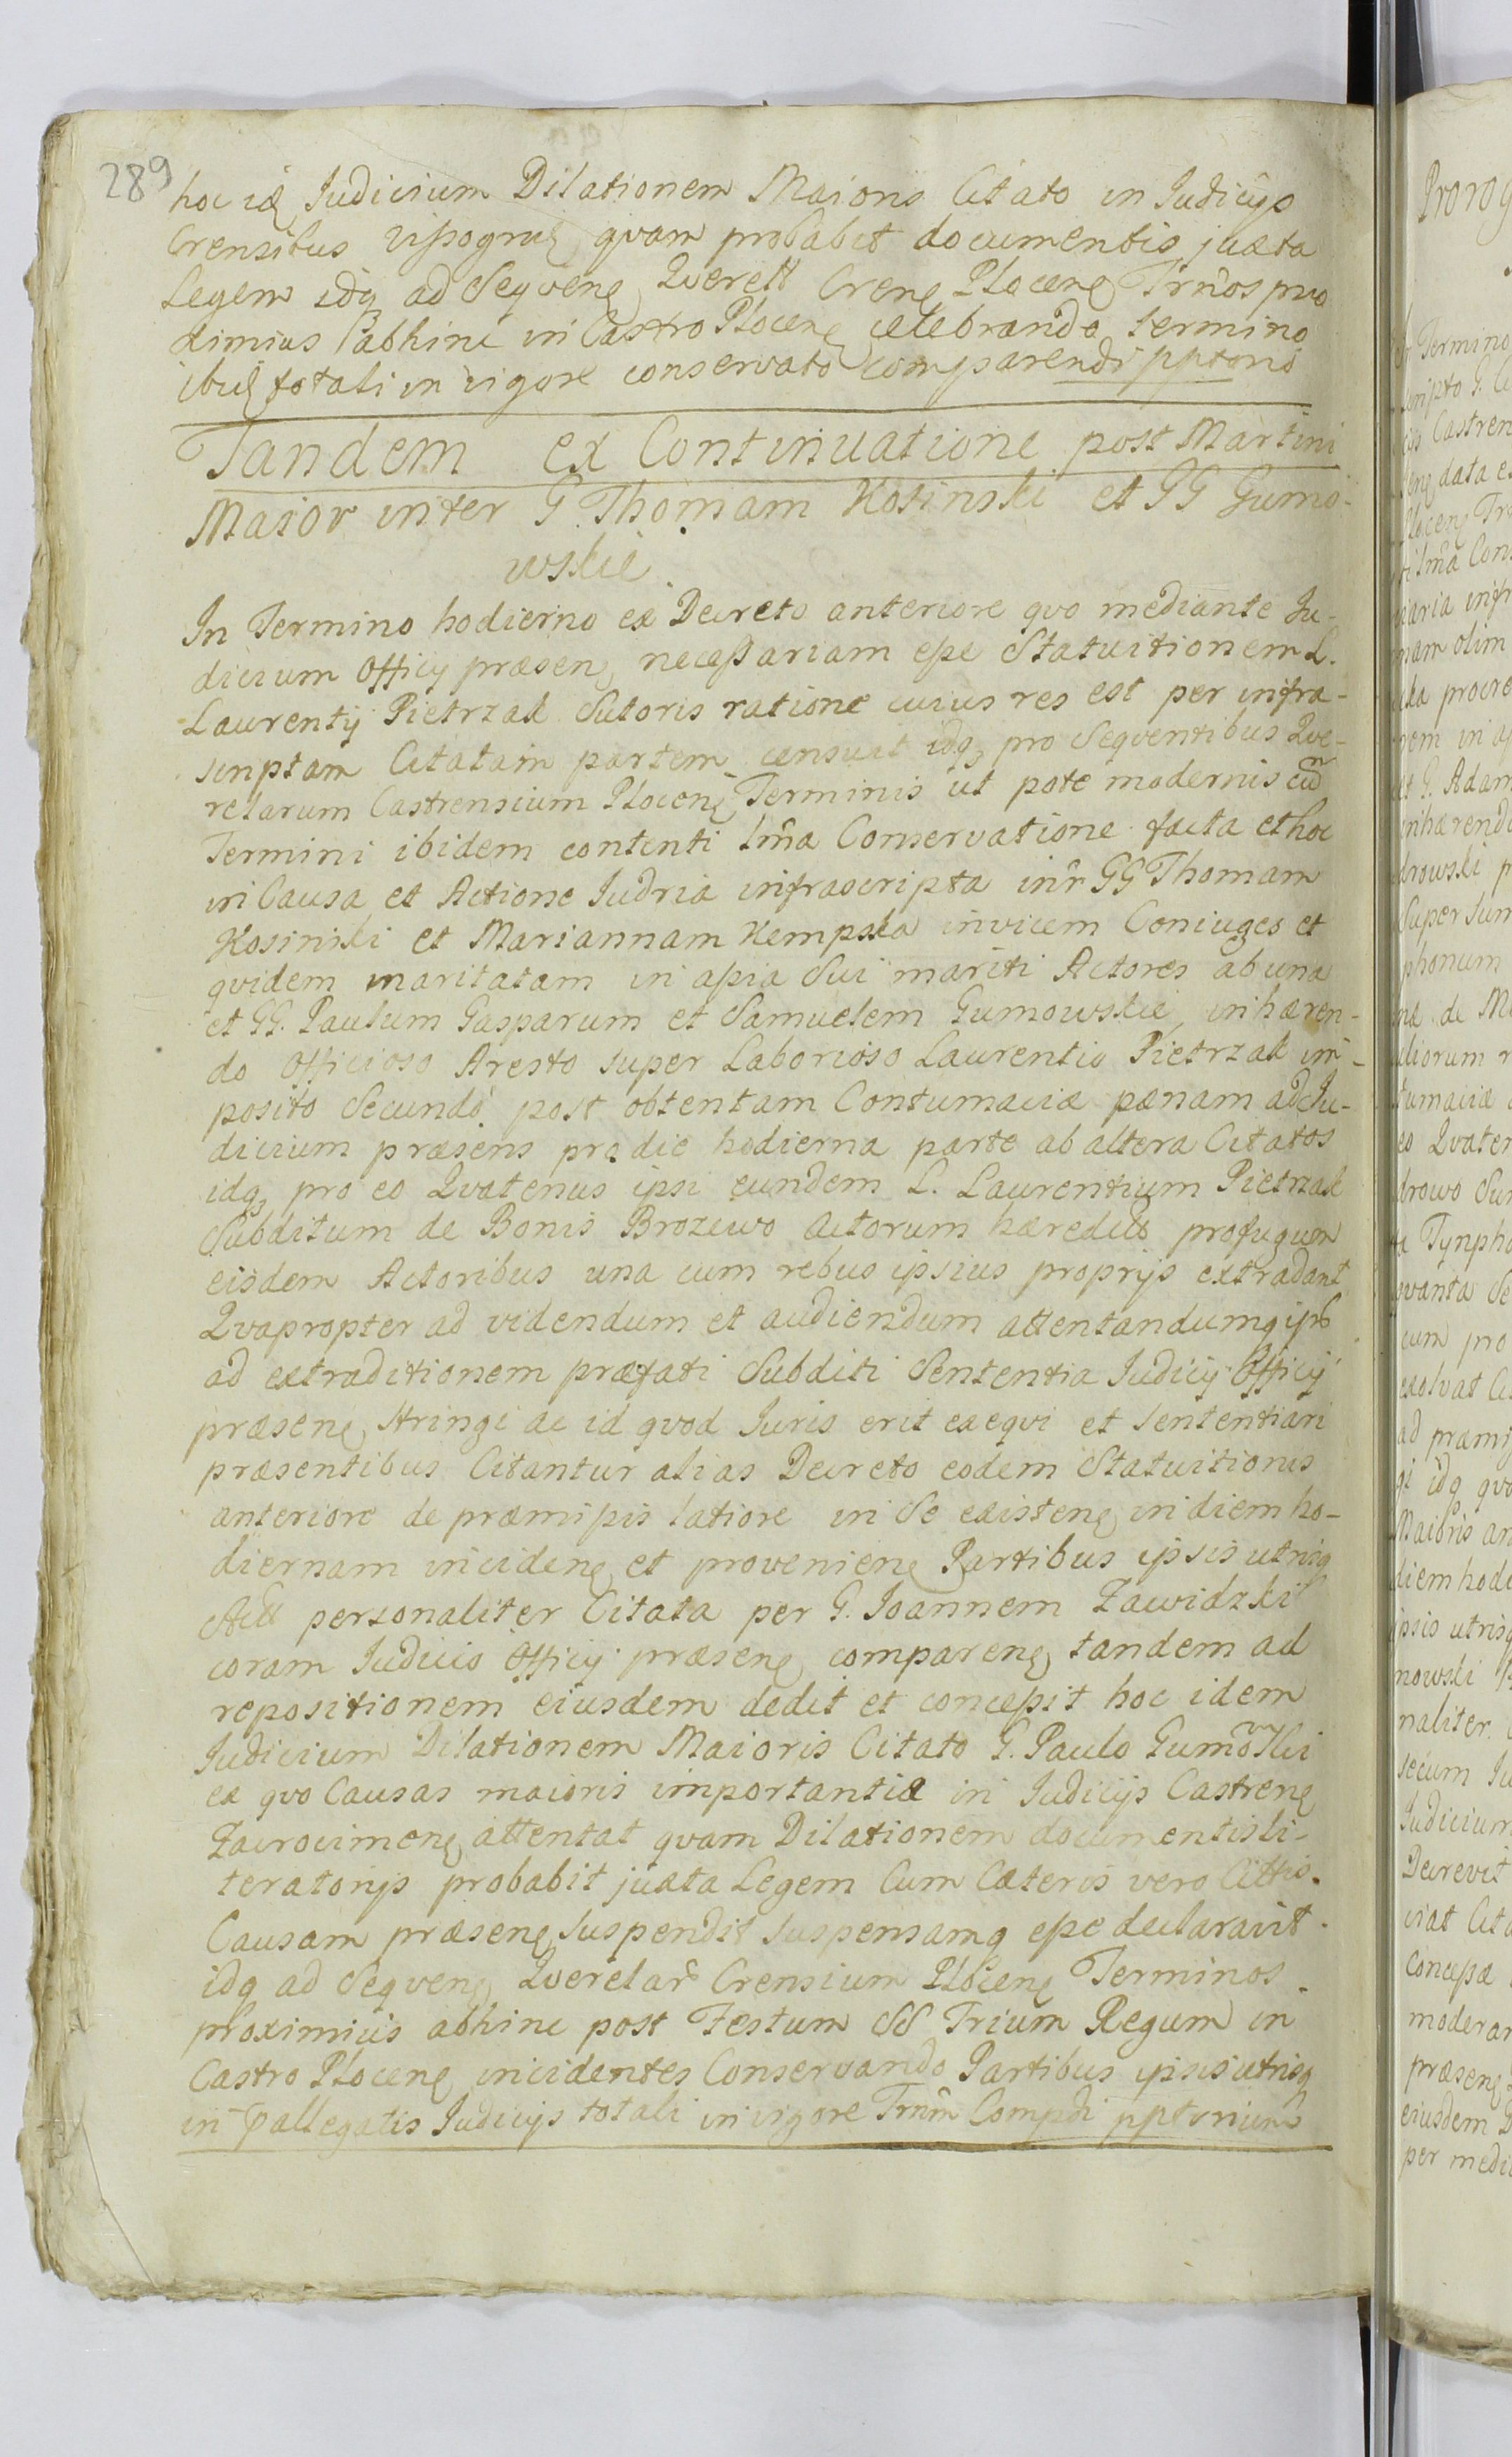 289
hoc id Judicium Dilationem Maioris Citato in Judicijs
Crensibus vissogrd, qvam probabit documentis juxta
Legem idq ad Seqvenq Querell Crenq Plocenq Trnos pro
ximius abhinc in Castro Plocenq celebrando termino
ibid totali in vigore conservato comparendi pptorio
Tandem ex Continuatione post Martini
Maior inter G. Thomam Kosinski et GG Gumo-
wskie
In Termino hodierno ex Decreto anteriore qvo mediante Ju-
dicium Officij præsenq necessariam esse Statuitionem L.
Laurentij Pietrzak Sutoris ratione cuius res est per infra-
scriptam Citatam partem censuit idq, pro Seqventibus Qve-
relarum Castrensium Plocenq Terminis ut pote modernis cum
Termini ibidem contenti Lma Conservatione facta et hoc
in Causa et Actione Judria infrascripta inr GG Thomam
Kosinski et Mariannam Kempska invicem Coniuges et
qvidem maritatam in assia Sui mariti Actores ab una
et GG. Paulum Gasparum et Samuelem Gumowskie, inhæren-
do Officioso Aresto super Laborioso Laurentio Pietrzak im-
posito Secundo post obtentam Contumaciæ pænam ad Ju-
dicium præsens pro die hodierna parte ab altera Citatos
idq, pro eo Qvatenus ipsi eundem L. Laurentium Pietrzak
Subditum de Bonis Brozewo Actorum hæreditis profugum
eisdem Actoribus una cum rebus ipsius proprijs extradant
Qvapropter ad videndum et audiendum attentandumq ipso
ad extraditionem præfati Subditi Sententia Judicij Officij
præsenq, stringi ac id qvod Juris erit exeqvi et sententiari
præsentibus Citantur alias Decreto eodem Statuitionis
anteriore de præmissis latiore in Se existenq, in diem ho-
diernam incidenq et provenienq Partibus ipsis utrisq
Actt personaliter Citata per G. Joannem Zawidzki
coram Judicio Officij præsenq comparenq, tandem ad
repositionem eiusdem dedit et concessit hoc idem
Judicium Dilationem Maioris Citato G. Paulo Gumowski
ex qvo Causas maioris importantiæ in Judicijs Castrenq
Zacrocimenq, attentat qvam Dilationem documentis li-
teratorijs probabit juxta Legem Cum Cæteris vero Cittis.
Causam præsenq, suspendit suspensamq esse declaravit.
idq ad Seqvenq, Querelar Crensium Plocenq Terminos
proximius abhinc post Festum SS Trium Regum in
Castro Plocenq incidentes Conservando Partibus ipsis utrisq
in pallegatis Judicijs totali in vigore Trnm Compdi pptorium